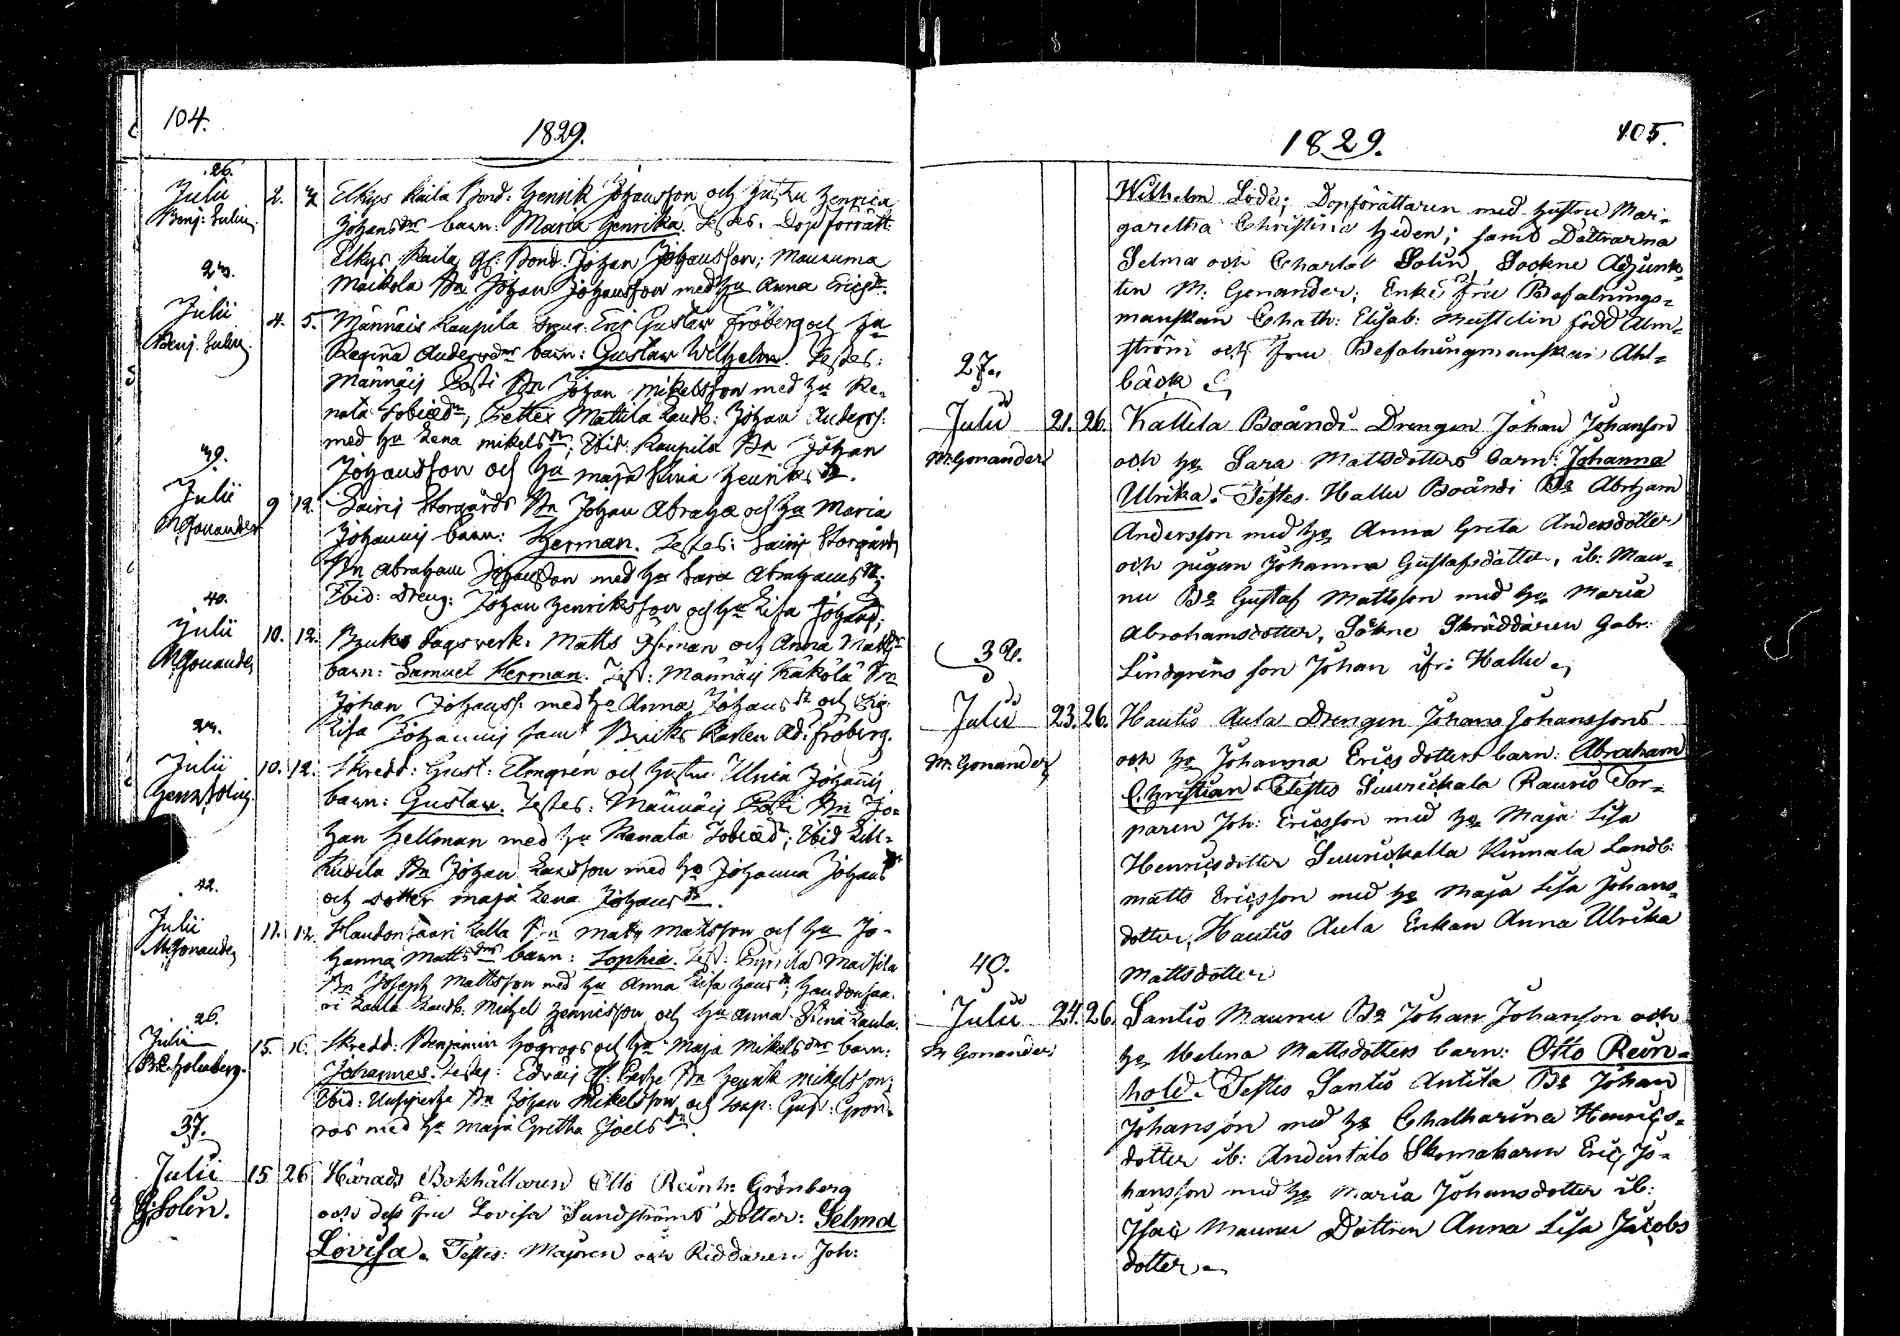 104.
1829.
26.
Julii 2. 7 Elkys Kaila Bond: Henrik Johansson och hustru Henrica
Benj: Salin. Johansdr barn: Maria Henrika. Testes. Dop förrätt.
Elkys Kaila gf. Bond. Johan Johansson; Maunuma
Maikola Bn Johan Johansson med hu Anna Ericsdr.
Julii 4. 5. Männäis Kaupila Dreng. Eric Gustav Fröberg och hu
Benj. Salin. Regina Andersdr barn: Gustav Wilhelm. Testes:
Männäis Bn Johan Mikelsson med hu Re-
nata Tobiædr, Mattila Landb: Johan Anderss:
med hu Lena Mikelsdr; Ibid. Kaupila Bn Johan
Johansson och hu Maja Stina Henriksdr.
39.
Julii 9 12. Storgårds Bn Johan Abrahæ och hu Maria
M. Gonander Johannis barn: Herman. Testes: Storgårds
Bn Abraham Johansson med hu Sara Abrahamsdr.
Ibid: Dreng: Johan Henriksson och hu Lisa Johansd;
40.
Julii 10. 12. Bruks dagsverk. Matts och Anna Mattsdr
M. Gonander barn: Samuel Herman. Test: Männäis Bn
Johan Johanss: med hu Anna Johansdr och
Lisa Johannis samt Bruks Karlen Ad: Fröberg.
Julii 10. 12. Skredd: Gust: Elmgrén och hustru Ulrica Johannis
barn: Gustav. Testes: Männäis Bn Jo-
han Hellman med hu Renata Tobiæd; Ibid
Bn Johan med hu Johanna Johansdr
och dotter Maja Lena Johansdr.
42.
Julii 11. 12. Haudonsaari Lalla Bn Matts Mattsson och hu Jo-
M. Gonander hanna Mattsdrs barn: Sophia. Test:
Bn Joseph Mattsson med hu Anna Lisa Hansdr; Haudonsaa-
ri Landb. Michel Henricsson och hu Anna Stina
26.
Julii 15. 16. Skredd: Benjamin och hu Maja Mikelsdrs barn:
Johannes. Testes: Bn Henrik Mikelsson;
Ibid: Bn Johan Mikelsson och Gust: Grön-
roos med hu Maja Gretha Joelsdr.
37.
Julii 15 26 Härads Bokhållaren Otto Reinh: Grönberg
G: Solin. och dess fru Lovisa Sundströms Dotter: Selma
Lovisa. Testes: Majoren och Riddaren Joh:
1829.
105.
Wilhelm Lode; Dopförättaren med hustru Mar-
garetha Christina Heden; samt Döttrarna
Selma och Charlot Solin, Sockne Adjunk-
ten M: Gonander; Enke fru Befalnings-
manskan Chath: Elisab: född Alm-
ström och Fru Befalningmanskan Ahl-
bäck
27.
Julii 21. 26. Kallela Boåndi Drengen Johan Johanson
M: Gonander och hu Sara Mattsdotters barn: Johanna
Ulrika. Testes. Hallu Boåndi Bn Abraham
Andersson med hu Anna Greta Andersdotter
och pigan Johanna Gustafsdotter, ib: Mau-
nu Bn Gustaf Mattsson med hu Maria
Abrahamsdotter, Sokne Skräddaren Gabr:
Lindgrens son Johan ifr: Hallu
38.
Julii 23. 26. Hautio Aula Drengen Johans Johanssons
M: Gonander och hu Johanna Ericsdotters barn: Abraham
Christian. Testes Suurickala Rauvio Tor-
paren Joh: Ericsson med hu Maja Lisa
Henricsdotter Suurickalla Kunnala Landb:
Matts Ericsson med hu Maja Lisa Johans-
dotter, Hautio Aula Enkan Anna Ulrika
Mattsdotter
40.
Julii 24. 26. Santio Maunu Bn Johan Johanson och
M Gonander hu Helena Mattsdotters barn: Otto Rein-
hold. Testes Santio Antila Bn Johan
Johanson med hu Chatharina Henrics-
dotter ib: Anduntalo Skomakaren Eric Jo-
hansson med hu Maria Johansdotter ib:
Isac Maunu Dottren Anna Lisa Jacobs
dotter